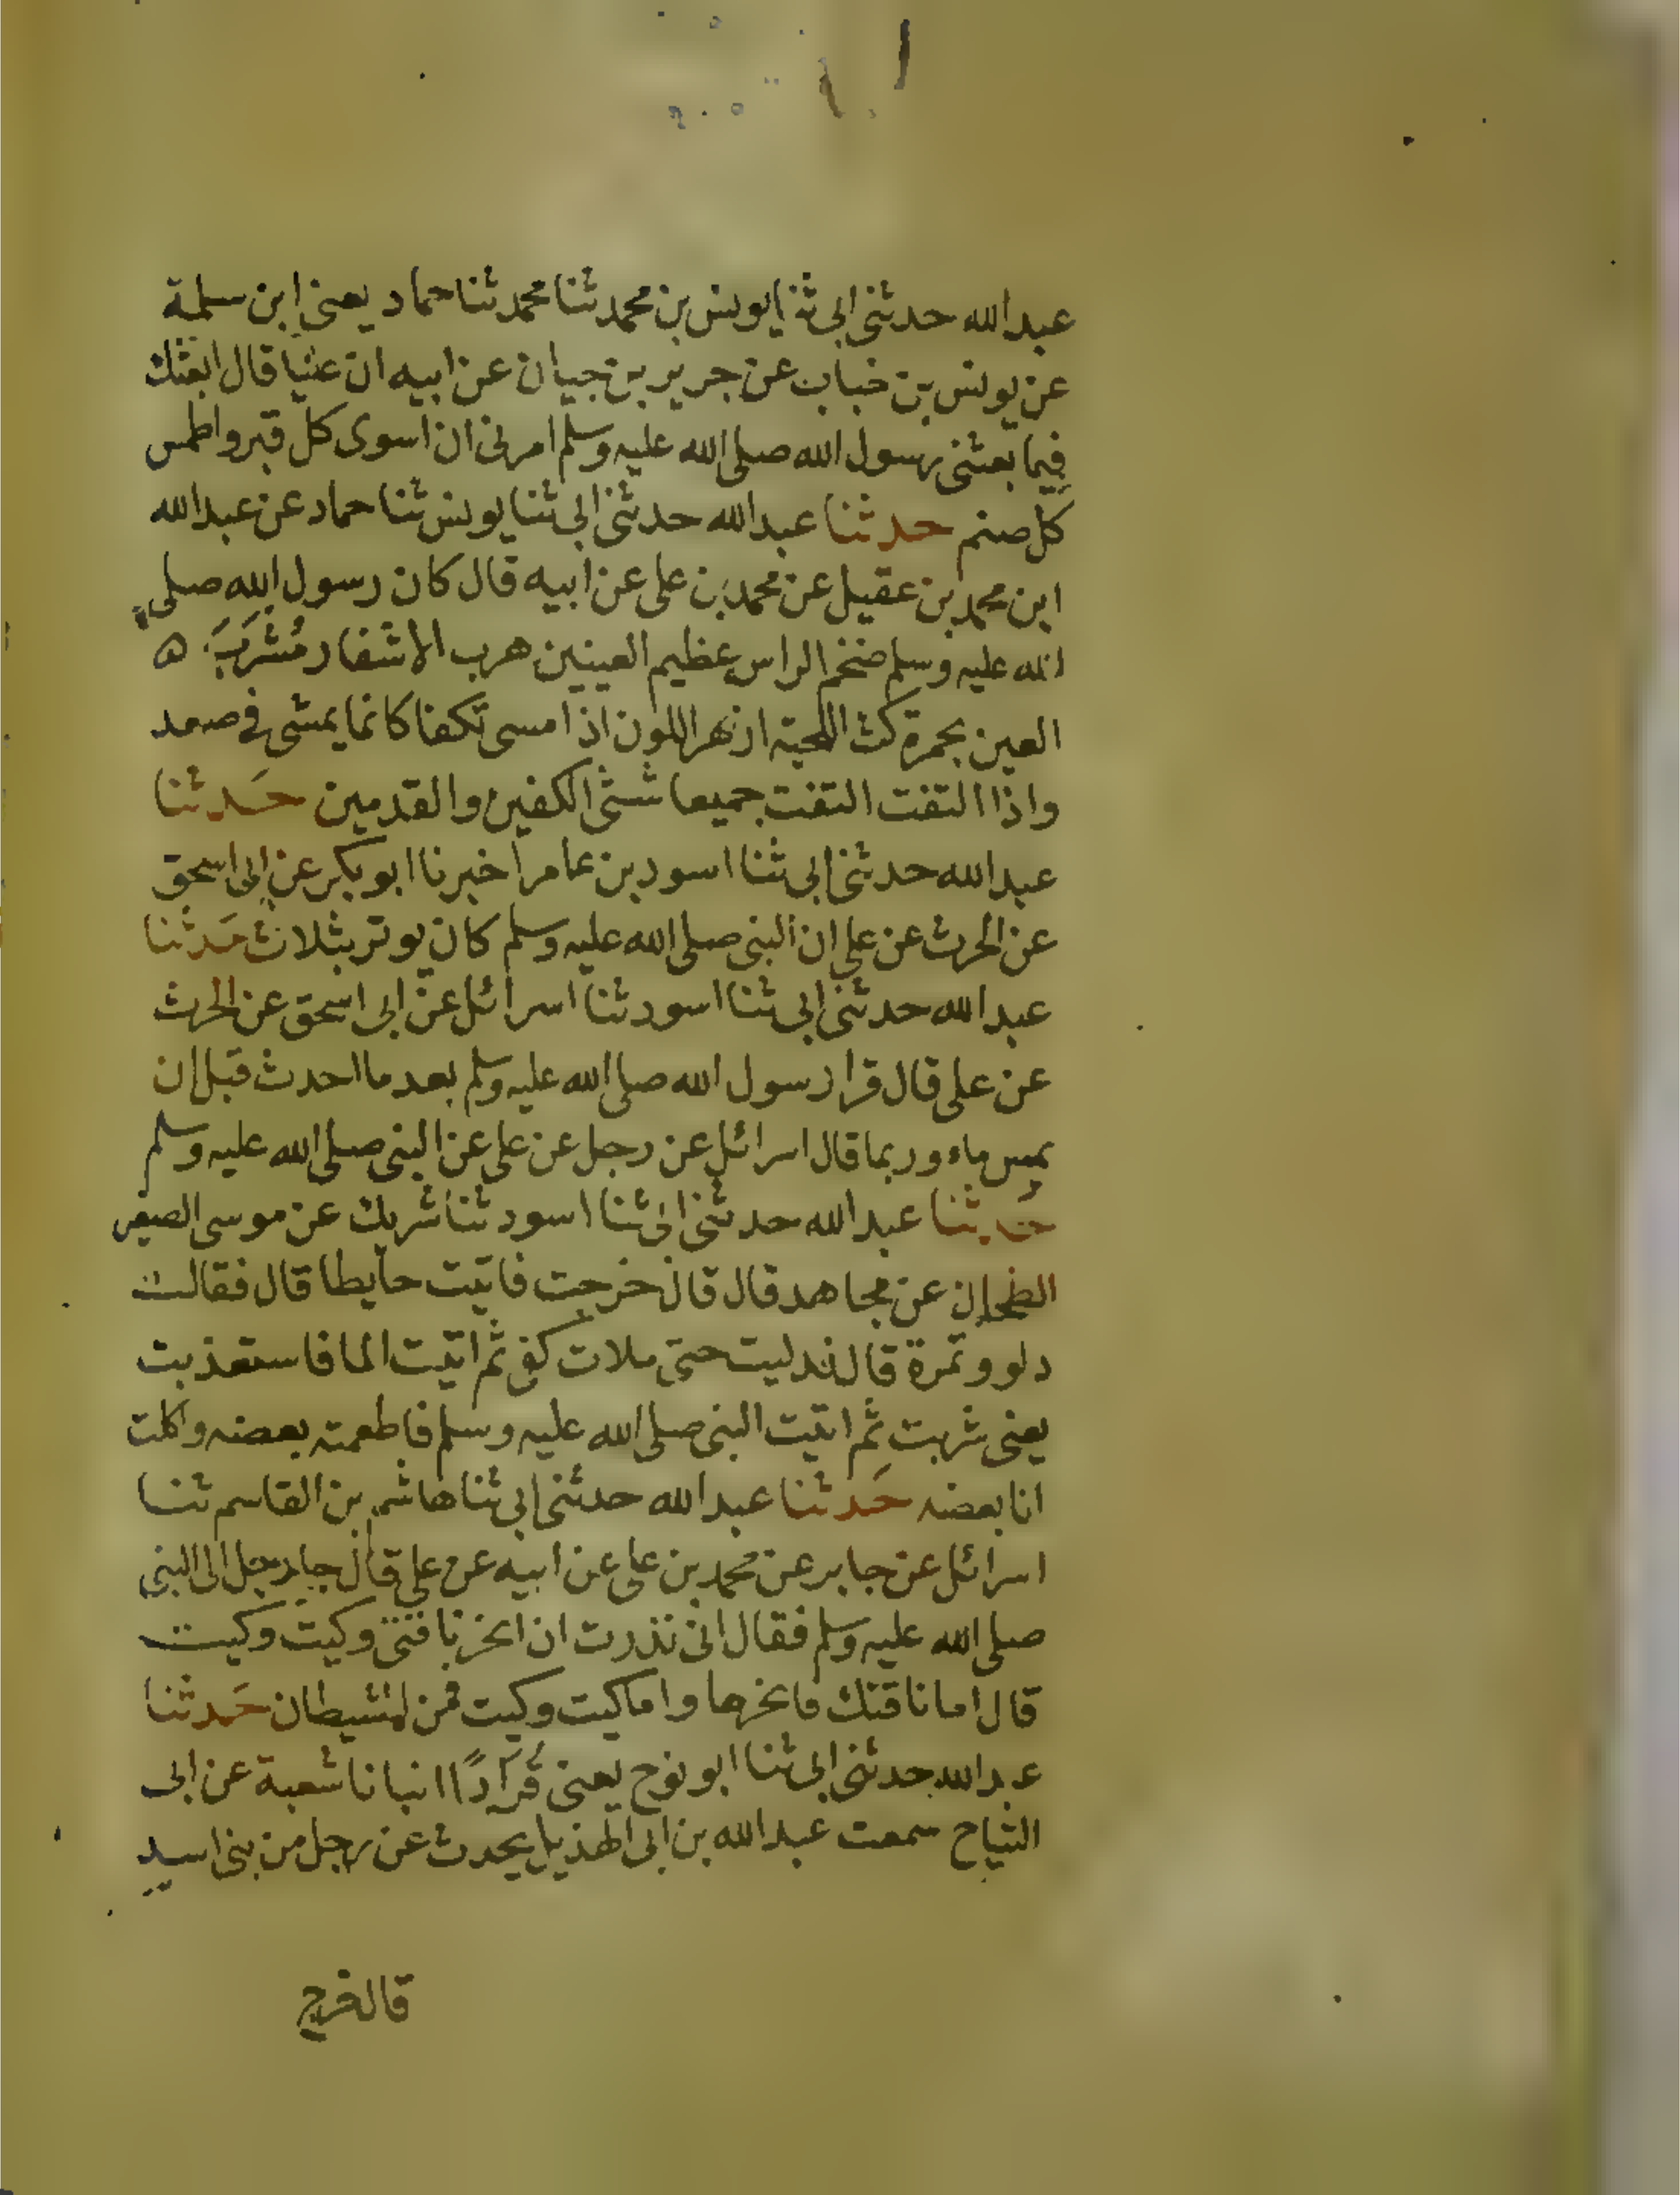 عبدالله حدثنى ابى ثنا يونس بن محمد ثنا محمد ثنا حماد يعنى ابن سلمة
عن يونس بن خباب عن جرير بن حيان عن ابيه ان عليا قال ابعثك
فيما بعثنى رسول الله صلى الله عليه وسلم امرنى ان اسوى كل قبر واطمس
كل صنم حدثنا عبدالله حدثنى ابى ثنا يونس ثنا حماد عن عبدالله
ابن محمد بن عقيل عن محمد بن على عن ابيه قال كان رسول الله صلى
الله عليه وسلم ضخم الراس عظيم العينين هرب الاشفار مُشْرَبَ ه
العين بحمرة كث اللحية ازهر اللون اذا امسى تكفا كانما يمشى فى صعد
واذا التفت التفت جميعا ششى الكفين والقدمين حَدثنا
عبدالله حدثنى ابى ثنا اسود بن عامر اخبرنا ابو بكر عن ابى اسحق
عن الحرث عن على ان النبى صلى الله عليه وسلم كان يوتر بثلاث حَدثنا
عبدالله حدثنى ابى ثنا اسود ثنا اسرائل عن ابى اسحق عن الحرث
عن على قال قرا رسول الله صلى الله عليه وسلم بعد ما احدث قبل ان
يمس ماء وربما قال اسرائل عن رجل عن على عن النبى صلى الله عليه وسلم
حَدثنا عبدالله حدثنى ابى ثنا اسود ثنا شريك عن موسى الصغير
الطحان عن مجاهد قال قال خرجت فاتيت حايطا قال فقالت
دلو وتمرة قال فدليت حتى ملات كفى ثم اتيت الما فاستعذبت
يعنى شربت ثم اتيت النبى صلى الله عليه وسلم فاطعمته بعضه واكلت
انا بعضه حَدثنا عبدالله حدثنى ابى ثنا هاشم بن القاسم ثنا
اسرائل عن جابر عن محمد بن على عن ابيه عن على قال جا رجل الى النبى
صلى الله عليه وسلم فقال انى نذرت ان انحر ناقتى وكيت وكيت
قال اما ناقتك فانحرها واما كيت وكيت فمن الشيطان حَدثنا
عبدالله حدثنى ابى ثنا ابو نوح يعنى قُرَادًا انبانا شعبة عن ابى
التياح سمعت عبدالله بن ابى الهذيل يحدث عن رجل من بنى اسد
قال خرج